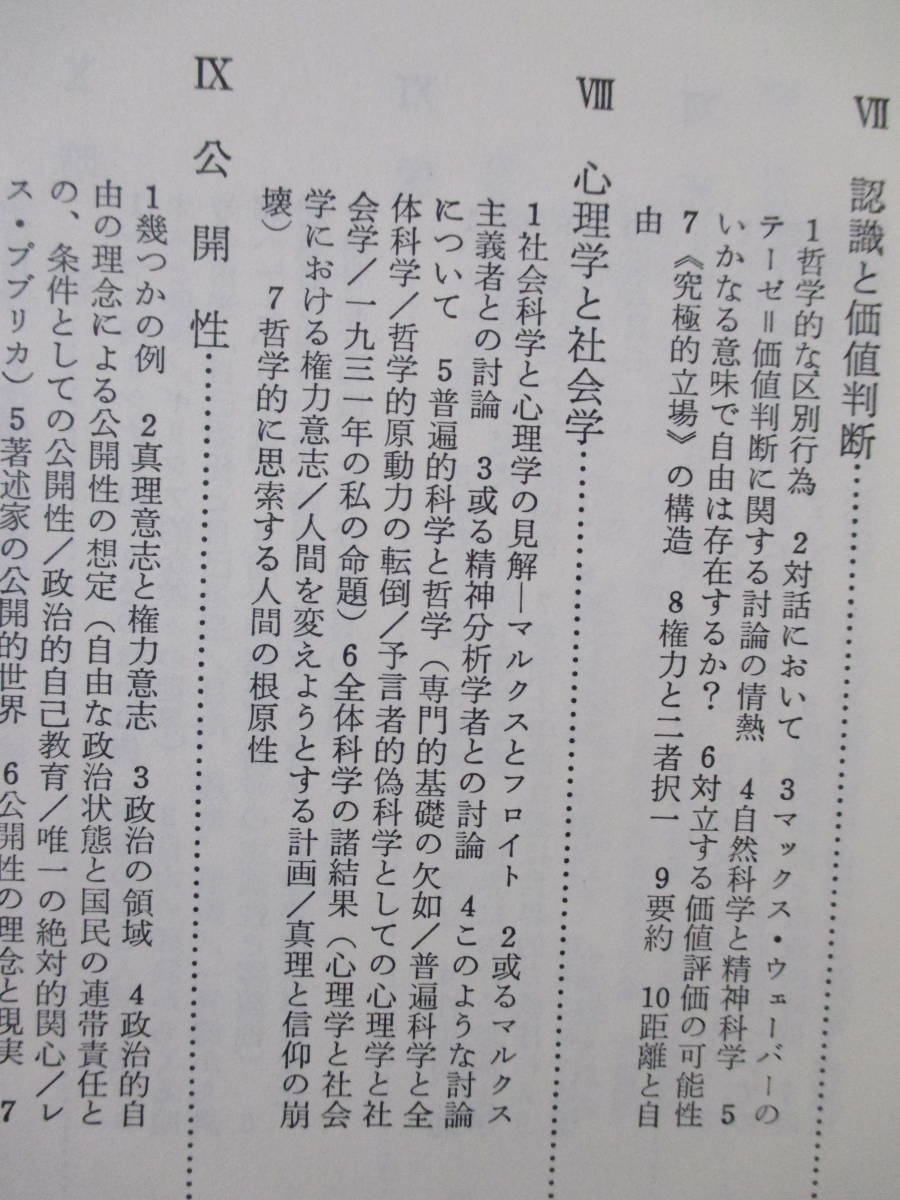 Ⅶ 認識と価値判断……………………………
1哲学的な区別行為 2対話において 3マックス・ウェーバーの
テーゼ＝価値判断に関する討論の情熱 4自然科学と精神科学 5
いかなる意味で自由は存在するか？ 6対立する価値評価の可能性
7《究極的立場》の構造 8権力と二者択一 9要約 10距離と自
由
Ⅷ 心理学と社会学……………………………
1社会科学と心理学の見解―マルクスとフロイト 2或るマルクス
主義者との討論 3或る精神分析学者との討論 4このような討論
について 5普遍的科学と哲学（専門的基礎の欠如／普遍科学と全
体科学／哲学的原動力の転倒／予言者的偽科学としての心理学と社
会学／一九三一年の私の命題）6全体科学の諸結果（心理学と社会
学における権力意志／人間を変えようとする計画／真理と信仰の崩
壊） 7哲学的に思索する人間の根原性
Ⅸ 公開性……………………………
1幾つかの例 2真理意志と権力意志 3政治の領域 4政治的自
由の理念による公開性の想定（自由な政治状態と国民の連帯責任と
の、条件としての公開性／政治的自己教育／唯一の絶対的関心／レ
ス・プブリカ）5著述家の公開的世界 6公開性の理念と現実 7